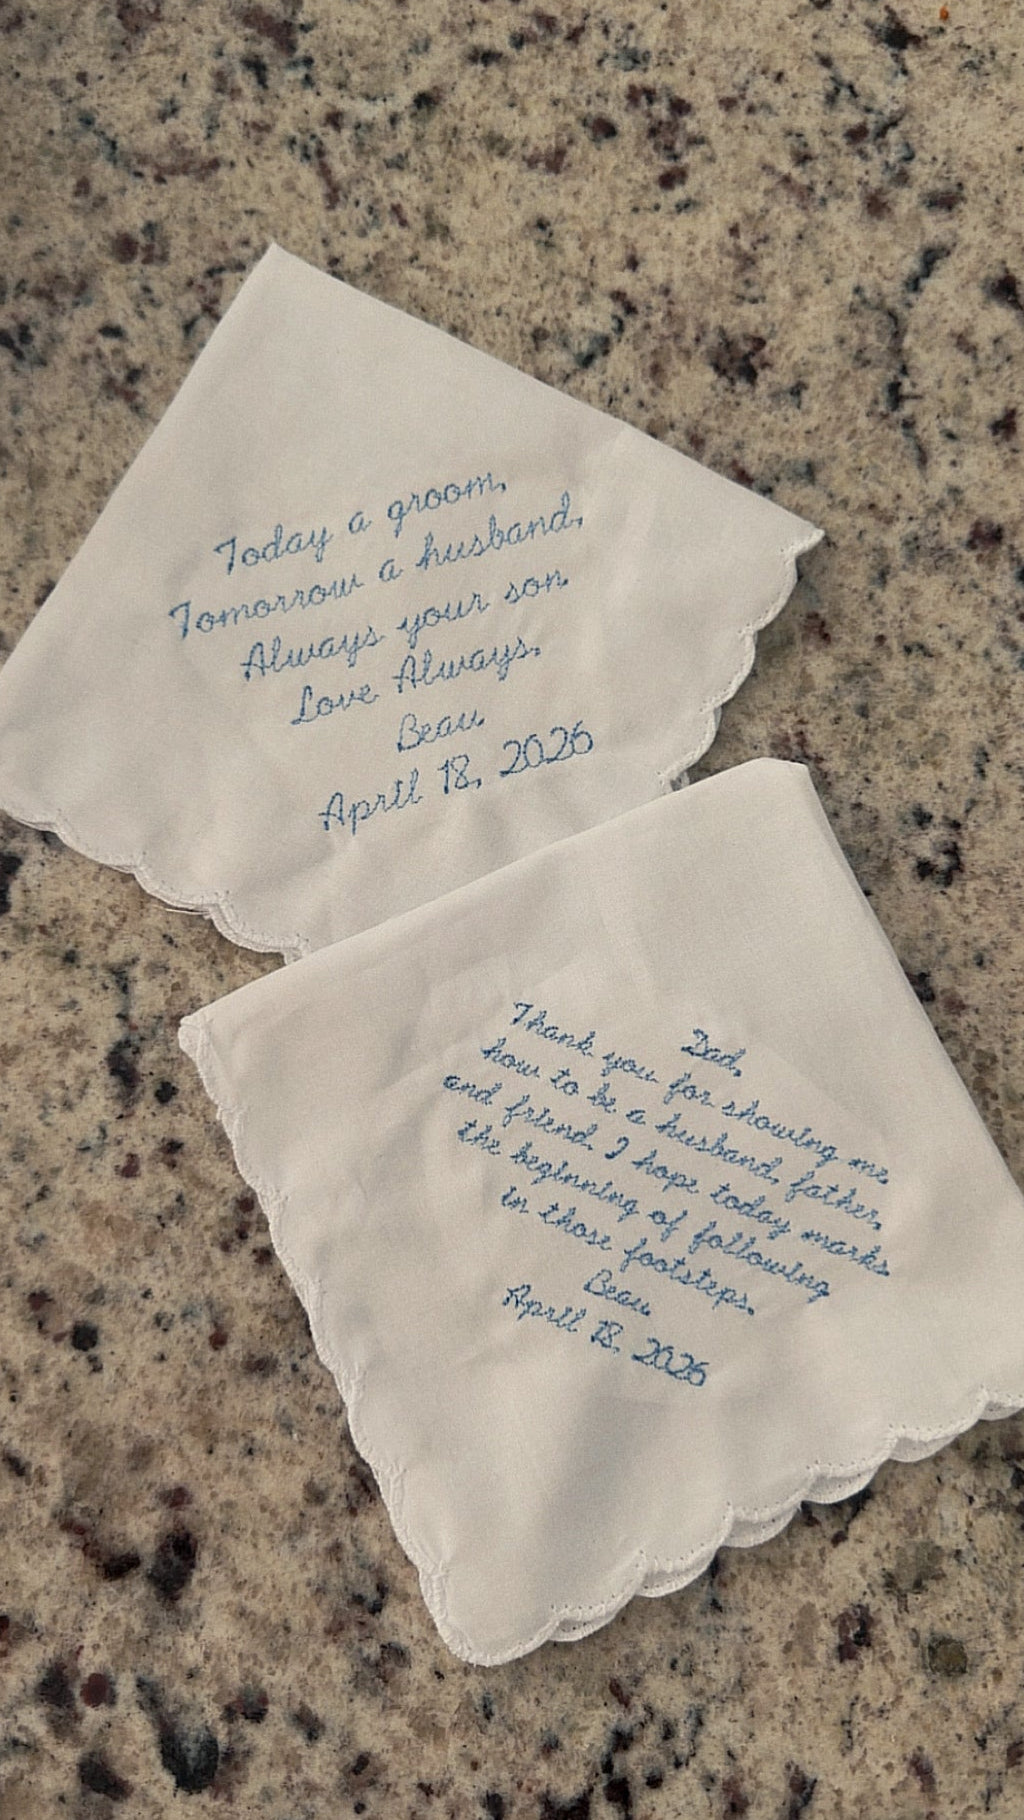 Today a groom,
Tomorrow a husband,
Always your son.
Love Always,
Beau
April 18, 2026
Dad,
Thank you for showing me
how to be a husband, father,
and friend. I hope today marks
the beginning of following
in those footsteps.
Beau
April 18, 2026